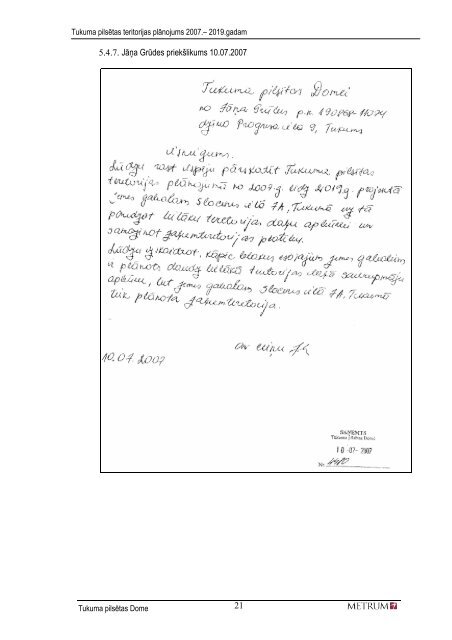 Tukuma pilsētas teritorijas plānojums 2007.– 2019.gadam
5.4.7. Jāņa Grūdes priekšlikums 10.07.2007
Tukuma pilsētas Domei
no Jāņa Grūdes p.k.
dzīvo Progresa ielā 9, Tukums
Iesniegums.
Lūdzu rast iespēju pārskatīt Tukuma pilsētas
teritorijas plānojumā no 2007.g. līdz 2019.g. projektā
zemes gabalam Slocenes ielā 7A, Tukumā uz tā
paredzot lielāku teritorijas daļu apbūvei un
samazinot zaļumteritorijas platību.
Lūdzu izskaidrot, kāpēc blakus esošajiem zemes gabaliem
ir plānota daudz lielākā teritorijas daļā savrupmāju
apbūve, bet zemes gabalam Slocenes ielā 7A, Tukumā
tiek plānota zaļumteritorija.
Ar cieņu
10.07.2007
SAŅEMTS
Tukuma pilsētas Domē
10 -07- 2007
Nr.
Tukuma pilsētas Dome
21
METRUM